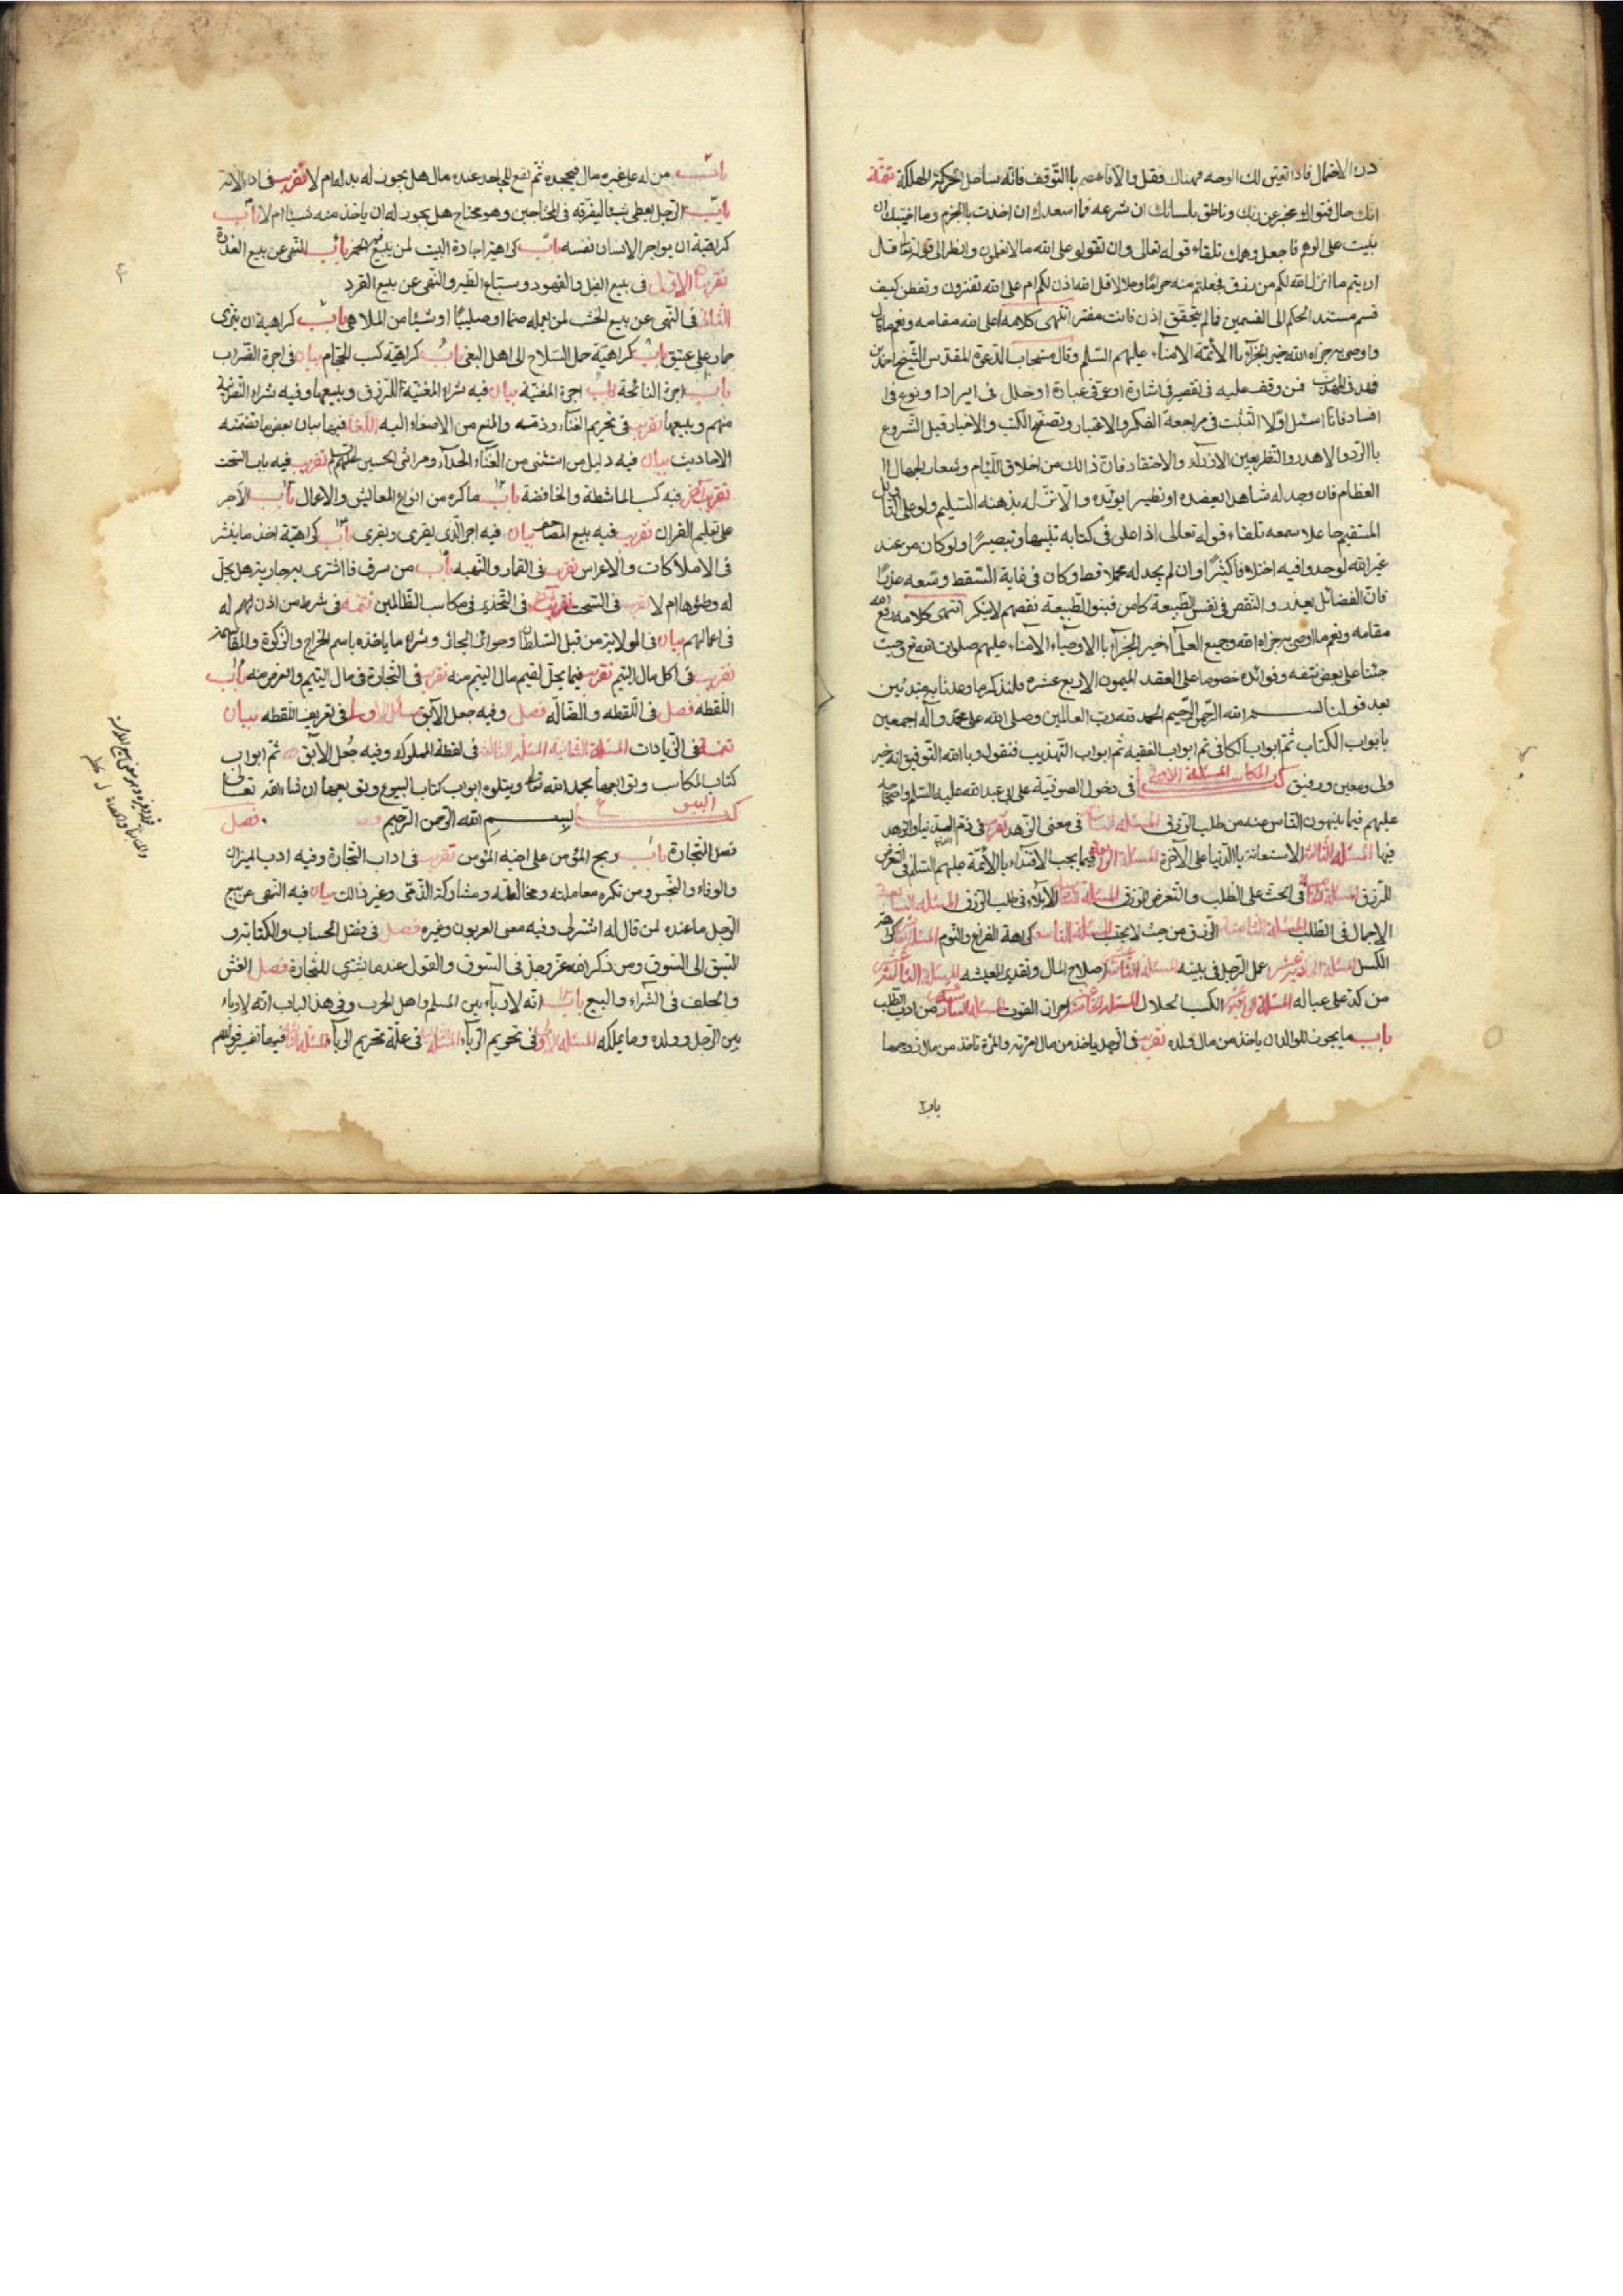 درء الاحتمال فاذا تعين لك الوجه فهناك فقل والا فاعصم باالتوقف فانه ساحل الهلكة تتمة
انك حال فتواك مخبر عن ربك وناطق بلسانك ان شرعه فما اسعدك ان اخذت باالجزم وما اخيبك ان
بنيت على الوهم فاجعل وهمك تلقاء قوله تعالى وان تقولو على الله مالا تعلمون وانظر الى قوله تعا قال
ارايتم ما انزل الله لكم من رزق فجعلتم منه حراما وحلالا قل الله اذن لكم ام على الله تفترون وتفطن كيف
قسم مستند الحكم الى القسمين فما لم يتحقق اذن فانت مفتر انتهى كلامه اعلى الله مقامه ونعم ما قال
وما وصى به جزاه الله خير الجزآء باالأئمة الامناء عليهم السلم وقال مستجاب الدعوة المقدس الشيخ احمد بن
فهد فى المهذب فمن وقف عليه فى تقصير فى اشارة او عى فى عبارة او خلل فى ايراد او نوع فى
افساد فانا اسئل اولا التثبت فى مراجعة الفكر والاعتبار وتصفح الكتب والاخبار قبل الشروع
باالرد والاهدر والنظر بعين الازدرآء والاحتقاد فان ذالك من اخلاق اللئام وشعار الجهال
العظام فان وجد له شاهدا يعضده او نظيرا يؤيده والا نزله بذهنه السليم ولو على التأويل
المستقيم جاعلا سمعه تلقاء قوله تعالى اذ اعلى فى كتابه تنبيها وتبصيرا ولو كان من عند
غير الله لوجدوا فيه اختلافا كثيرا وان لم يجد له محملا قط وكان فى غاية السقط وسعه عذرا
فان الفضائل بعدد والنقص فى نفس الطبيعة كامن فبنو الطبيعة نقصهم لا ينكر انتهى كلامه رفع الله
مقامه ونعم ما اوصى به جزاه الله وجميع العلمآء خير الجزآء باالاوصياء الامناء عليهم صلوات الله وحيث
جئنا على بعض نتفه وفوائده خصوصا على العقد الميمون الاربع عشره فلنذكر ما وعدنا به مبتدئين
بعد قولنا بسم الله الرحمن الرحيم الحمد لله رب العالمين وصلى الله على محمد وآله اجمعين
بابواب الكتاب ثم ابواب الكافى ثم ابواب الفقيه ثم ابواب التهذيب فنقول وباالله التوفيق انه خير
ولى ومعين ورفيق كتاب المكاسب المسئلة الاولى فى دخول الصوفية على ابى عبدالله عليه السلم واحتجاجه
عليهم فيما ينهون الناس عنه من طلب الرزق المسئله الثانيه فى معنى الزهد تقريب فى ذم الدنيا والزهد
فيها المسئله الثالثه الاستعانة باالدنيا على الآخرة المسئلة الرابعة فيما يجب الاقتداء باالأئمة عليهم السلم فى التعرض
للرزق المسئلة الخامسة فى الحث على الطلب والتعرض للرزق المسئله السادسة الابلآء فى طلب الرزق المسئله السابعه
الاجمال فى الطلب المسئلة الثامنة الرزق من حيث لا يحتسب المسئلة التاسعه كراهة الفراغ والنوم المسئله العاشرة كراهية
الكسل المسئله الحادى عشر عمل الرجل فى بيته المسئله الثانية عشر اصلاح المال وتقدير المعيشه المسئلة الثالثة عشر
من كد على عياله المسئلة الرابعة عشر الكسب الحلال المسئلة الخامسة عشر احراز القوت المسئله السادسة عشر من اداب الطلب
باب ما يجوز للوالد ان ياخذ من مال ولده تقريب فى الرجل ياخذ من مال امرته والمرة تاخذ من مال زوجها
باب
باب من له على غيره مال فيجحده ثم تقع للجاحد عنده مال هل يجوز له بدله ام لا تقريب فى اداء الامانة
باب الرجل يعطى شيئا ليفرقه فى المحتاجين وهو محتاج هل يجوز له ان ياخذ منه شيئا ام لا باب
كراهية ان يواجر الانسان نفسه باب كراهية اجارة البيت لمن يبيع فيه الخمر باب النهى عن بيع العذرة
تقريب الاول فى بيع الفيل والفهود وسباع الطير والنهى عن بيع القرد
الثانى فى النهى عن بيع الخشب لمن يعمله صنما او صليبا او شيئا من الملاهى باب كراهية ان ينزى
حمار على عتيق باب كراهية حمل السلاح الى اهل البغى باب كراهية كسب الحجام بيان فى اجرة الضراب
باب اجرة النائحة باب اجرة المغنية بيان فيه شراء المغنية للرزق وبيعها وفيه شراء النصرانية
منهم وبيعها تقريب فى تحريم الغناء وذمه والمنع من الاصغاء اليه فيها بيان بعض ما تضمنته
الاحاديث بيان فيه دليل من استثنى من الغناء الحداء ومراثى الحسين تقريب فيه باب السحت
تقريب آخر فيه كسب الماشطة والخافضة باب ما كره من انواع المعايش والاعمال باب الاجر
على تعليم القران تقريب فيه بيع المصاحف بيان فيه اجر الذى يقرى ويقرى باب كراهية اخذ ما ينثر
فى الاملاكات والاعراس تقريب فى القمار والنهبه باب من سرق فاشترى به جارية هل يحل
له وطئوها ام لا تقريب فى السحت تقريب فى التحذير فى مكاسب الظالمين تتمة فى شرط من اذن لهم له
فى اعمالهم بيان فى الولاية من قبل السلطان وجوائز الجائز وشراء ما ياخذه باسم الخراج والزكوة والمقاسمة
تقريب فى اكل مال اليتيم تقريب فيما يحل لقيم مال اليتيم منه تقريب فى التجارة فى مال اليتيم والقرض منه باب
اللقطه فصل فى اللقطه والضاله فصل وفيه جعل الآبق مسائل الاولى فى تعريف اللقطه بيان
تتمة فى الزيادات المسئلة الثانية المسئلة الثالثه فى لقطة المملوك وفيه جعل الآبق ثم ابواب
كتاب المكاسب وتوابعها بحمد الله تعا ويتلوه ابواب كتاب البيوع وتوابعها ان شاء الله تعالى
كتاب البيوع بسم الله الرحمن الرحيم فصل
فصل التجارة باب ربح المؤمن على اخيه المؤمن تقريب فى اداب التجارة وفيه ادب الميزان
والوفاء والبخس ومن تكره معاملته ومخالطته ومشاركة الذمى وغير ذالك بيان فيه النهى عن بيع
الرجل ما عنده لمن قال له اشتر لى وفيه معنى العربون وغيره فصل فى فضل الحساب والكتابة وفى
السبق الى السوق ومن ذكر الله عز وجل فى السوق والقول عند ما يشترى للتجارة فصل الغش
والحلف فى الشراء والبيع باب انه لا ربآء بين المسلم واهل الحرب وفى هذا الباب انه لا رباء
بين الرجل وولده وما يملكه المسئله الاولى فى تحريم الربآء المسئله الثانية فى علة تحريم الربآء المسئله الثالثة فيها تفسير قولهم